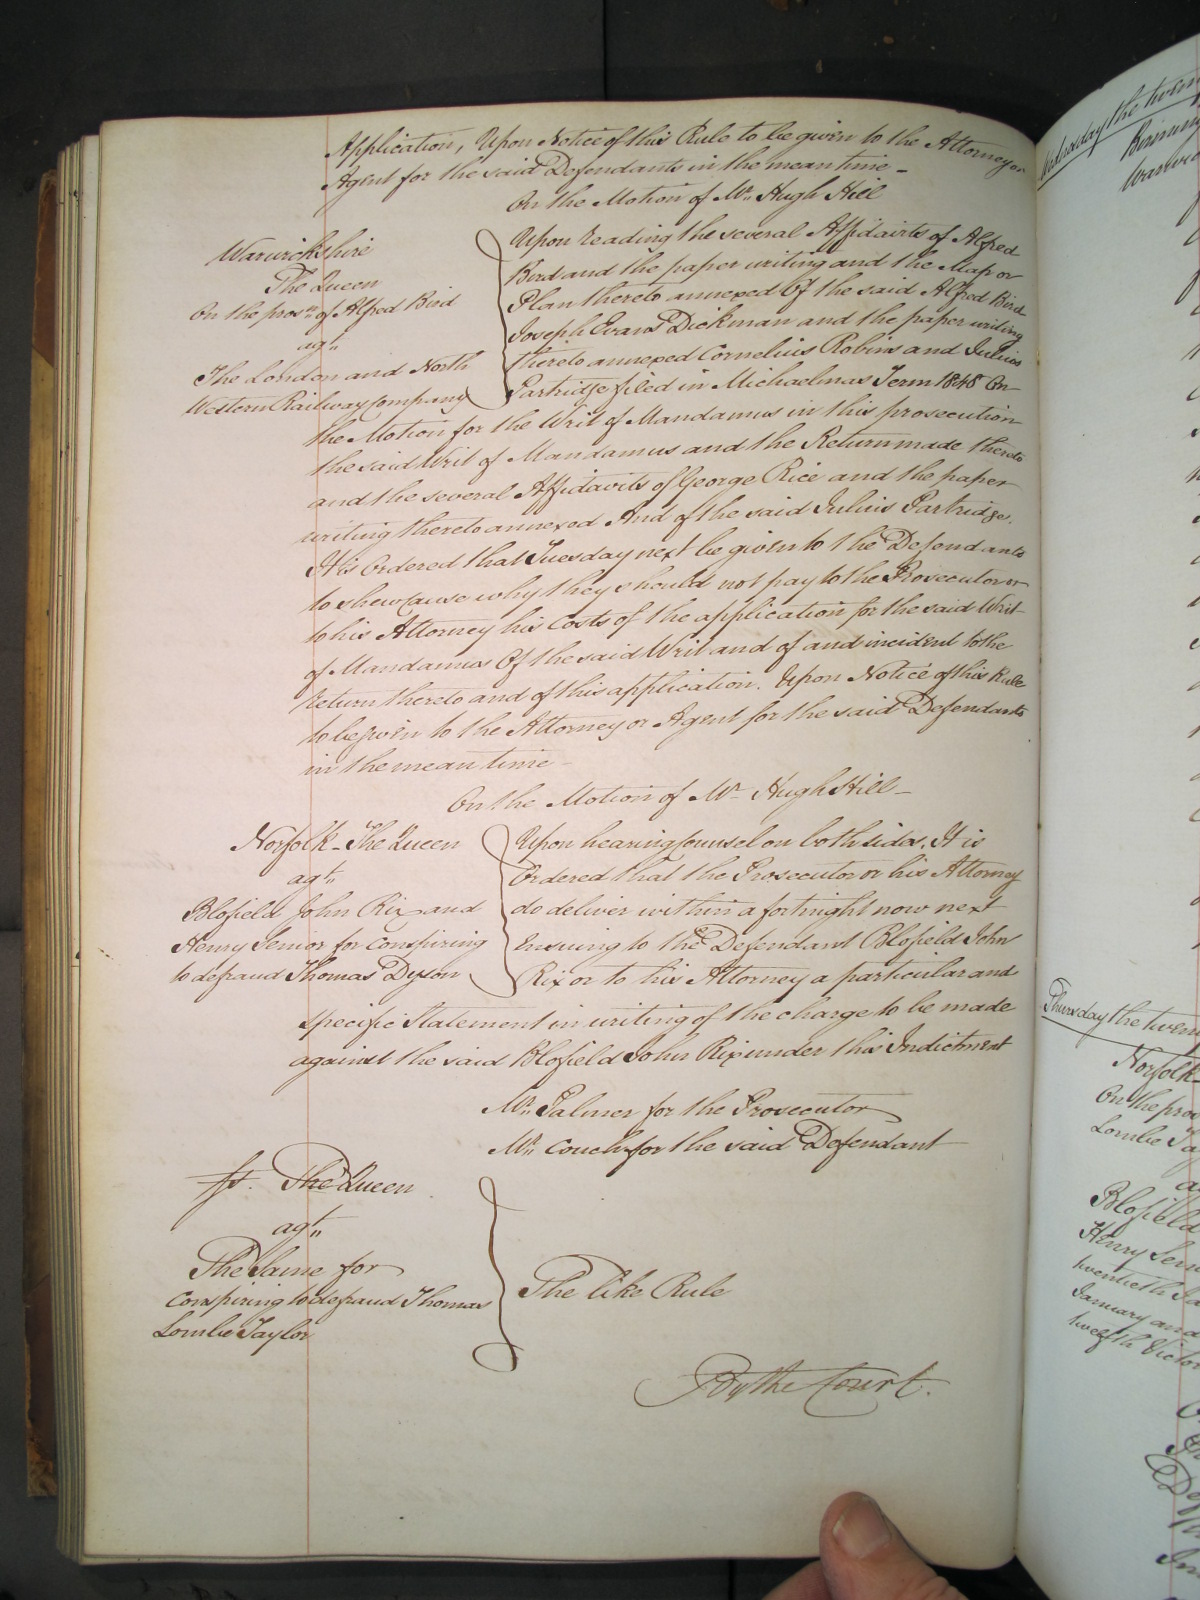 Application, Upon Notice of this Rule to be given to the Attorney or
Agent for the said Defendants in the mean time –
On the Motion of Mr. Hugh Hill
Warwickshire
The Queen
On the prosn. of Alfred Bird
agt.
The London and North
Western Railway Company
Upon reading the several Affidavits of Alfred
Bird and the paper writing and the Map or
Plan thereto annexed Of the said Alfred Bird
Joseph Evans Dickman and the paper writing
thereto annexed Cornelius Robins and Julius
Partridge filed in Michaelmas Term 1848 On
the Motion for the Writ of Mandamus in this prosecution
the said Writ of Mandamus and the Return made thereto
and the several Affidavits of George Rice and the paper
writing thereto annexed And of the said Julius Partridge.
It is Ordered that Tuesday next be given to the Defendants
to shew cause why they should not pay to the Prosecutor or
to his Attorney his Costs of the application for the said Writ
of Mandamus Of the said Writ and of and incident to the
return thereto and of this application. Upon Notice of this Rule
to be given to the Attorney or Agent for the said Defendants
in the mean time –
On the Motion of Mr. Hugh Hill –
Norfolk – The Queen
agt.
Blofield John Rix and
Henry Senior for conspiring
to defraud Thomas Dyson
Upon hearing Counsel on both sides. It is
Ordered that the Prosecutor or his Attorney
do deliver within a fortnight now next
Ensuing to the Defendant Blofield John
Rix or to his Attorney a particular and
specific Statement in writing of the charge to be made
against the said Blofield John Rix under this Indictment
Mr. Palmer for the Prosecutor
Mr. Couch for the said Defendant
The Queen
agt.
The Same for
Conspiring to defraud Thomas
Lombe Taylor
The like Rule
By the Court.
Wednesday the twen
Thursday the twen
Norfolk
On the pro
Lombe Ta
Blofield
Henry Sen
twentieth Ja
January and
twelfth Victor